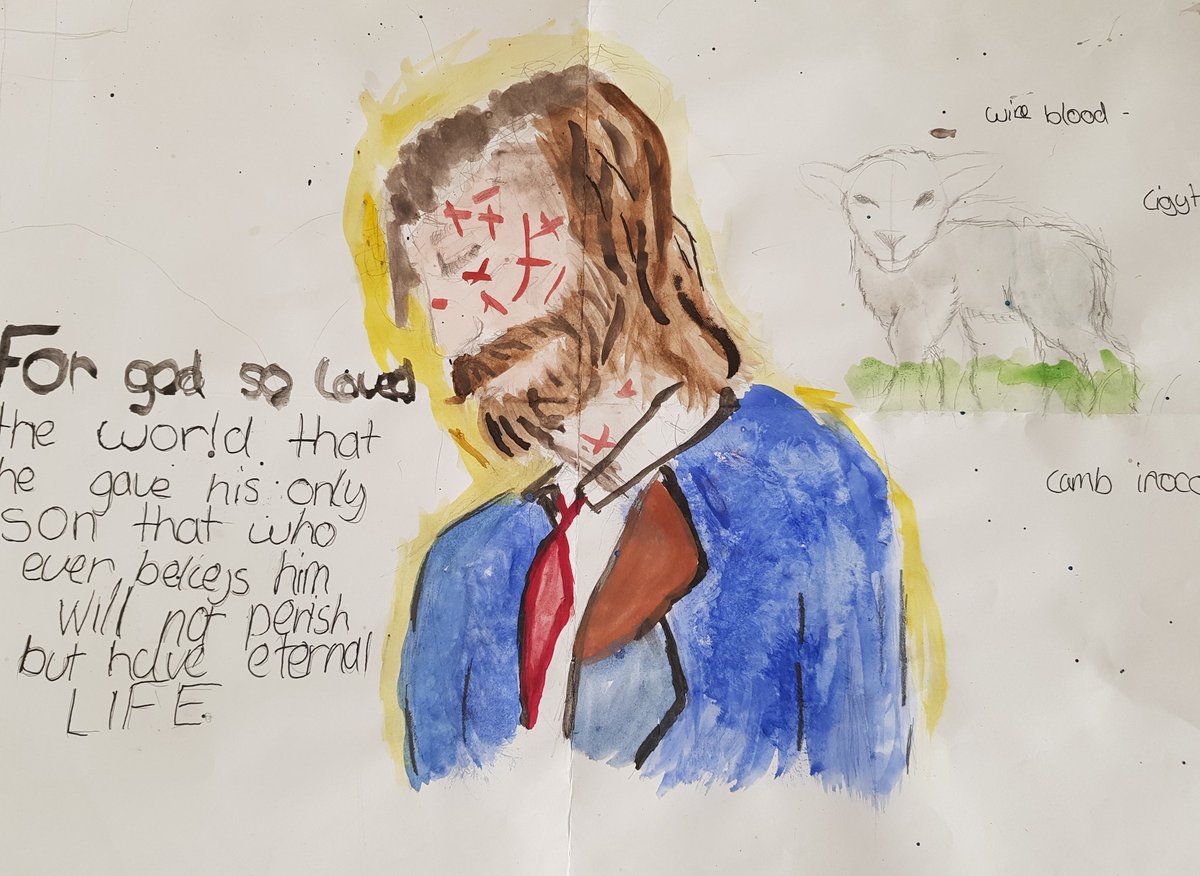 For god so loved
the world that
he gave his only
son that who
ever beleiejs him
will not perish
but have eternal
LIFE
wine blood -
camb inocc